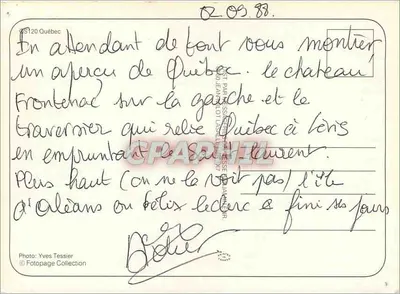 02.09.88.
CS120 Québec
En attendant de tout vous montrer
un aperçu de Québec. le chateau
Frontenac sur la gauche et le
traversier qui relie Québec à Lévis
en empruntant le Saint Laurent.
CPARPHIL
Plus haut (on ne le voit pas) l'île
d'Orléans ou Félix Leclerc a fini ses jours
Didier
Photo: Yves Tessier
© Fotopage Collection